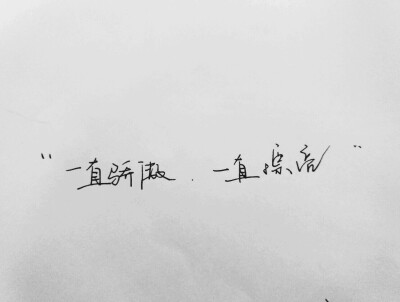 “一直骄傲．一直漂亮”